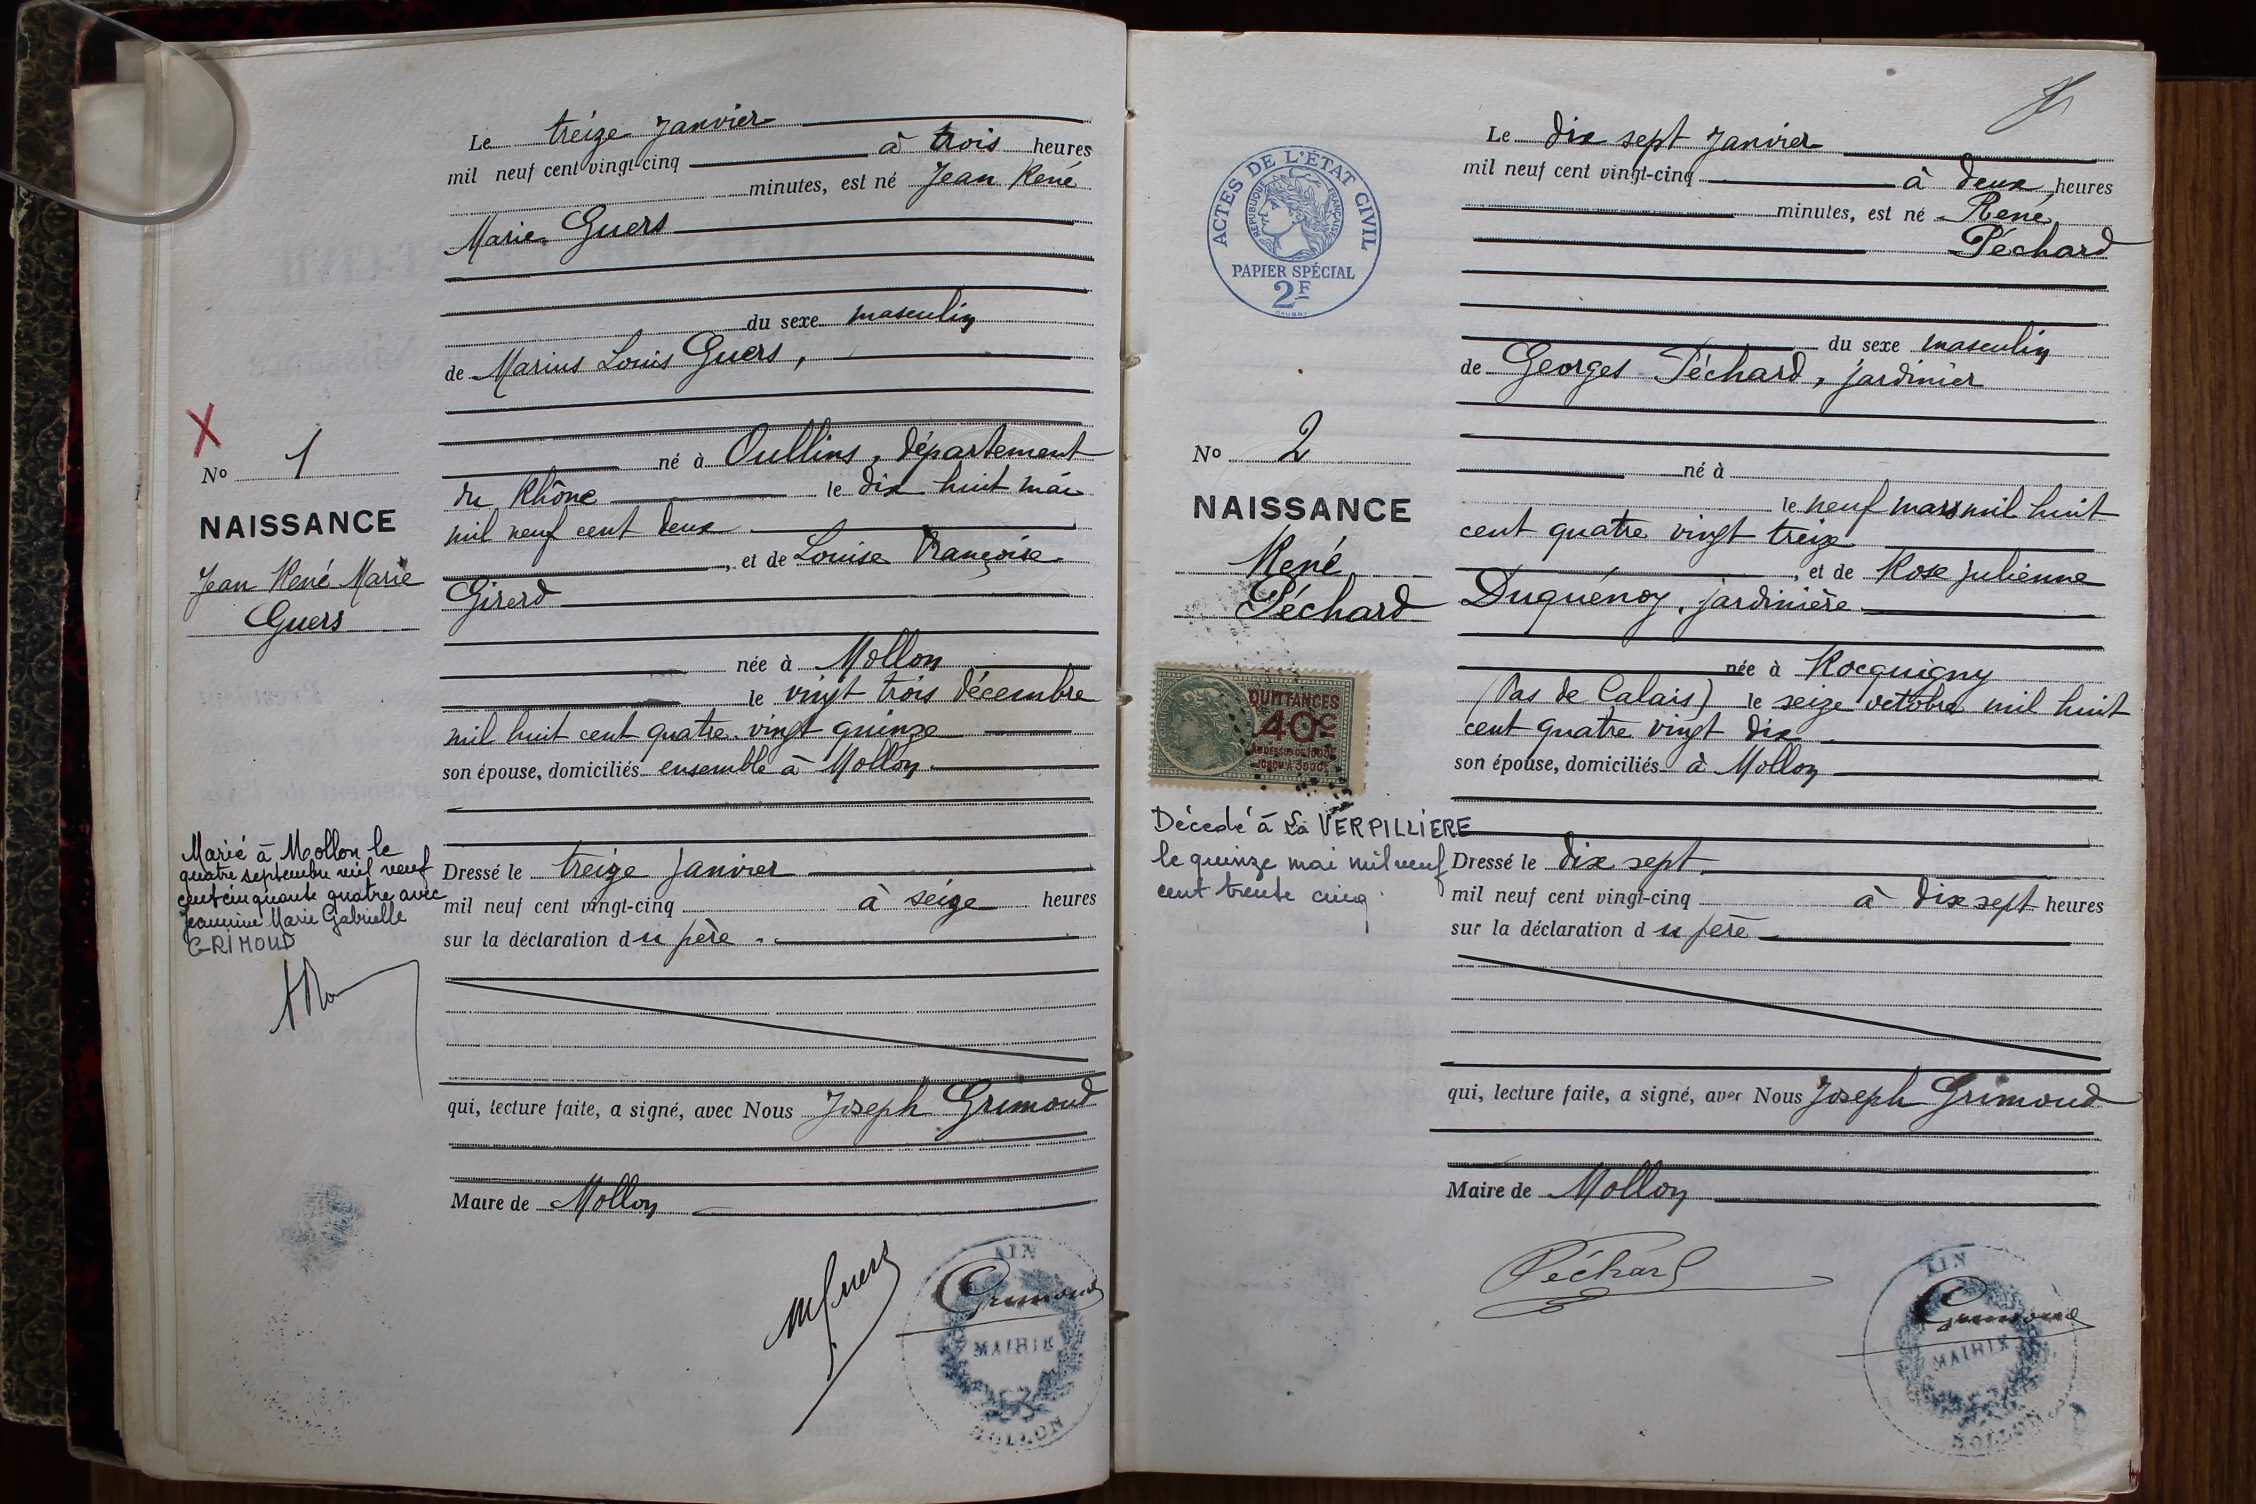 Le treize Janvier
mil neuf cent vingt-cinq à trois heures
minutes, est né Jean René
Marie Guers
du sexe masculin
de Marius Louis Guers,
né à Oullins, département
du Rhône le dix huit mai
mil neuf cent deux
, et de Louise Françoise
Girerd
née à Mollon
le vingt trois décembre
mil huit cent quatre vingt quinze
son épouse, domiciliés ensemble à Mollon
Dressé le treize Janvier
mil neuf cent vingt-cinq à seize heures
sur la déclaration du père
qui, lecture faite, a signé, avec Nous Joseph Grimoud
Maire de Mollon
M Guers
Grimoud
AIN
MAIRIE
MOLLON
No 1
NAISSANCE
Jean René Marie
Guers
Marié à Mollon le
quatre septembre mil neuf
cent cinquante quatre avec
Jeannine Marie Gabrielle
GRIMOUD
ACTES DE L'ÉTAT CIVIL
RÉPUBLIQUE FRANÇAISE
PAPIER SPÉCIAL
2F
No 2
NAISSANCE
René
Péchard
QUITTANCES
40c
Décédé à La VERPILLIERE
le quinze mai mil neuf
cent trente cinq
Le dix sept Janvier
mil neuf cent vingt-cinq à deux heures
minutes, est né René
Péchard
du sexe masculin
de Georges Péchard, jardinier
né à
le neuf mars mil huit
cent quatre vingt treize
, et de Rose Julienne
Duquénoy, jardinière
née à Rocquigny
(Pas de Calais) le seize octobre mil huit
cent quatre vingt dix
son épouse, domiciliés à Mollon
Dressé le dix sept
mil neuf cent vingt-cinq à dix sept heures
sur la déclaration du père
qui, lecture faite, a signé, avec Nous Joseph Grimoud
Maire de Mollon
Péchard
Grimoud
AIN
MAIRIE
MOLLON